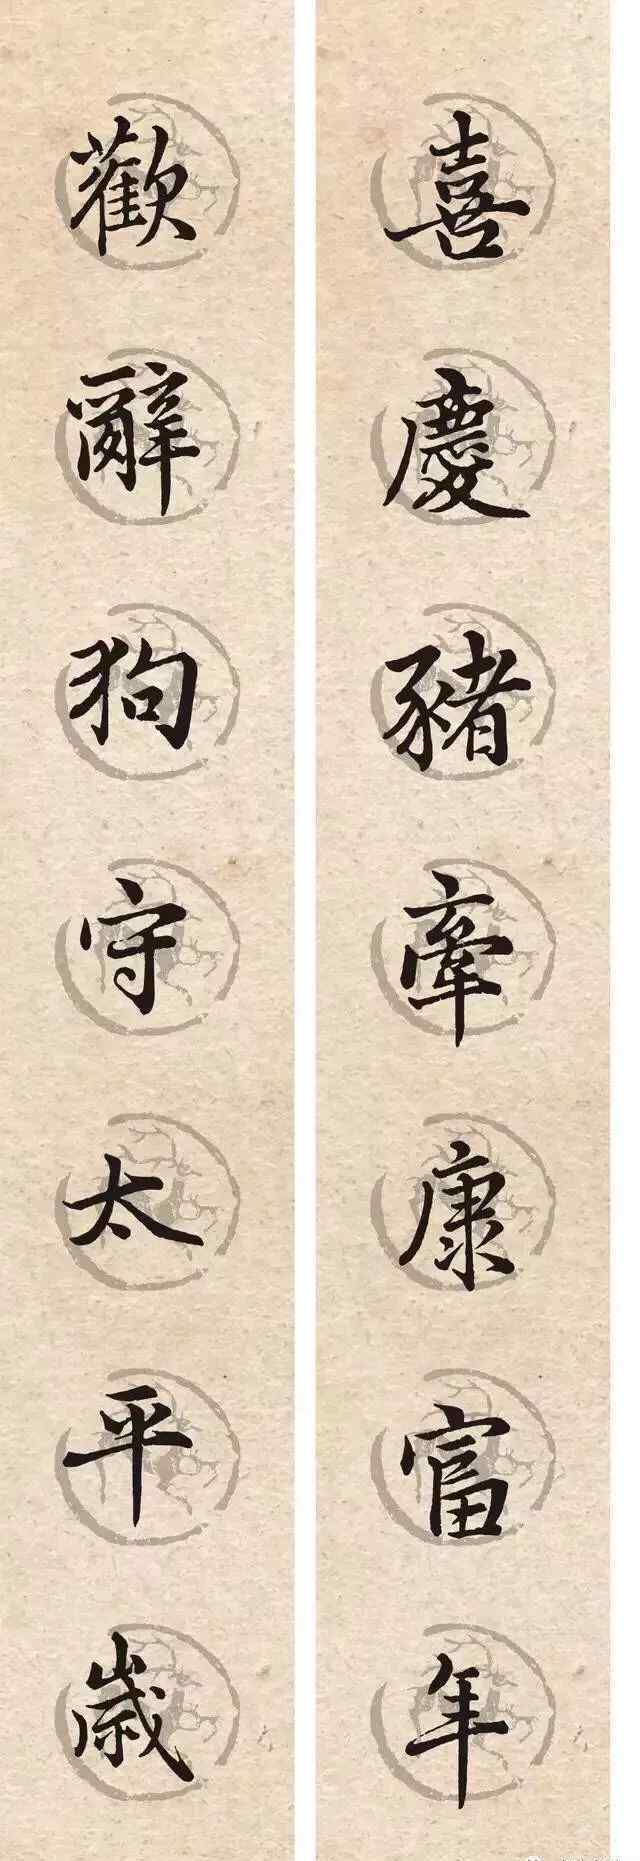 喜慶豬牽康富年
歡辭狗守太平歲